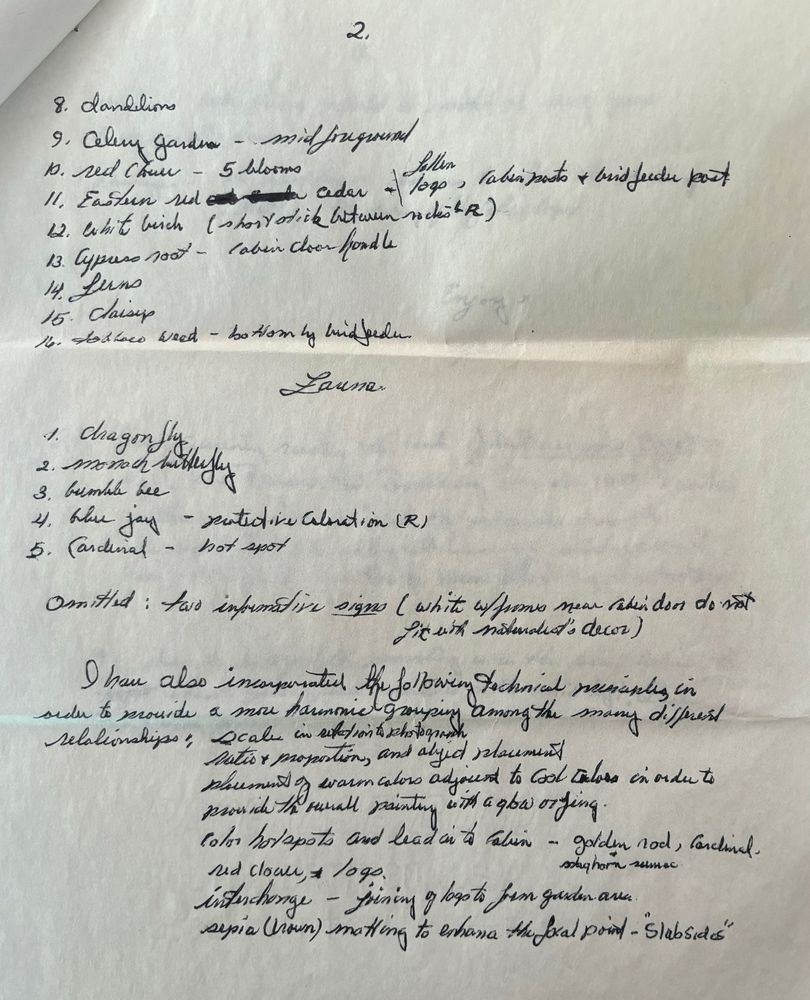 2.
8. dandelions
9. Celery garden - mid foreground
10. red clover - 5 blooms
11. Eastern red cedar - fallen logs, cabin posts + bird feeder post
12. White birch (short stick between rocks R)
13. Cypress root - cabin door handle
14. ferns
15. daisys
16. tobacco weed - bottom by bird feeder
Fauna
1. dragonfly
2. monach butterfly
3. bumble bee
4. blue jay - protective coloration (R)
5. Cardinal - hot spot
Omitted: two informative signs (white w/frames near cabin door do not
fit with naturalist's decor)
I have also incorporated the following technical principles, in
order to provide a more harmonic grouping among the many different
relationships: scale in relation to photograph
ratio + proportion, and object placement
placement of warm colors adjacent to cool colors in order to
provide the overall painting with a glow or zing.
Color hotspots and lead in to cabin - golden rod, Cardinal,
staghorn sumac
red clover, + logs.
interchange - joining of logs to form garden area.
sepia (brown) matting to enhance the focal point - "Slabsides"